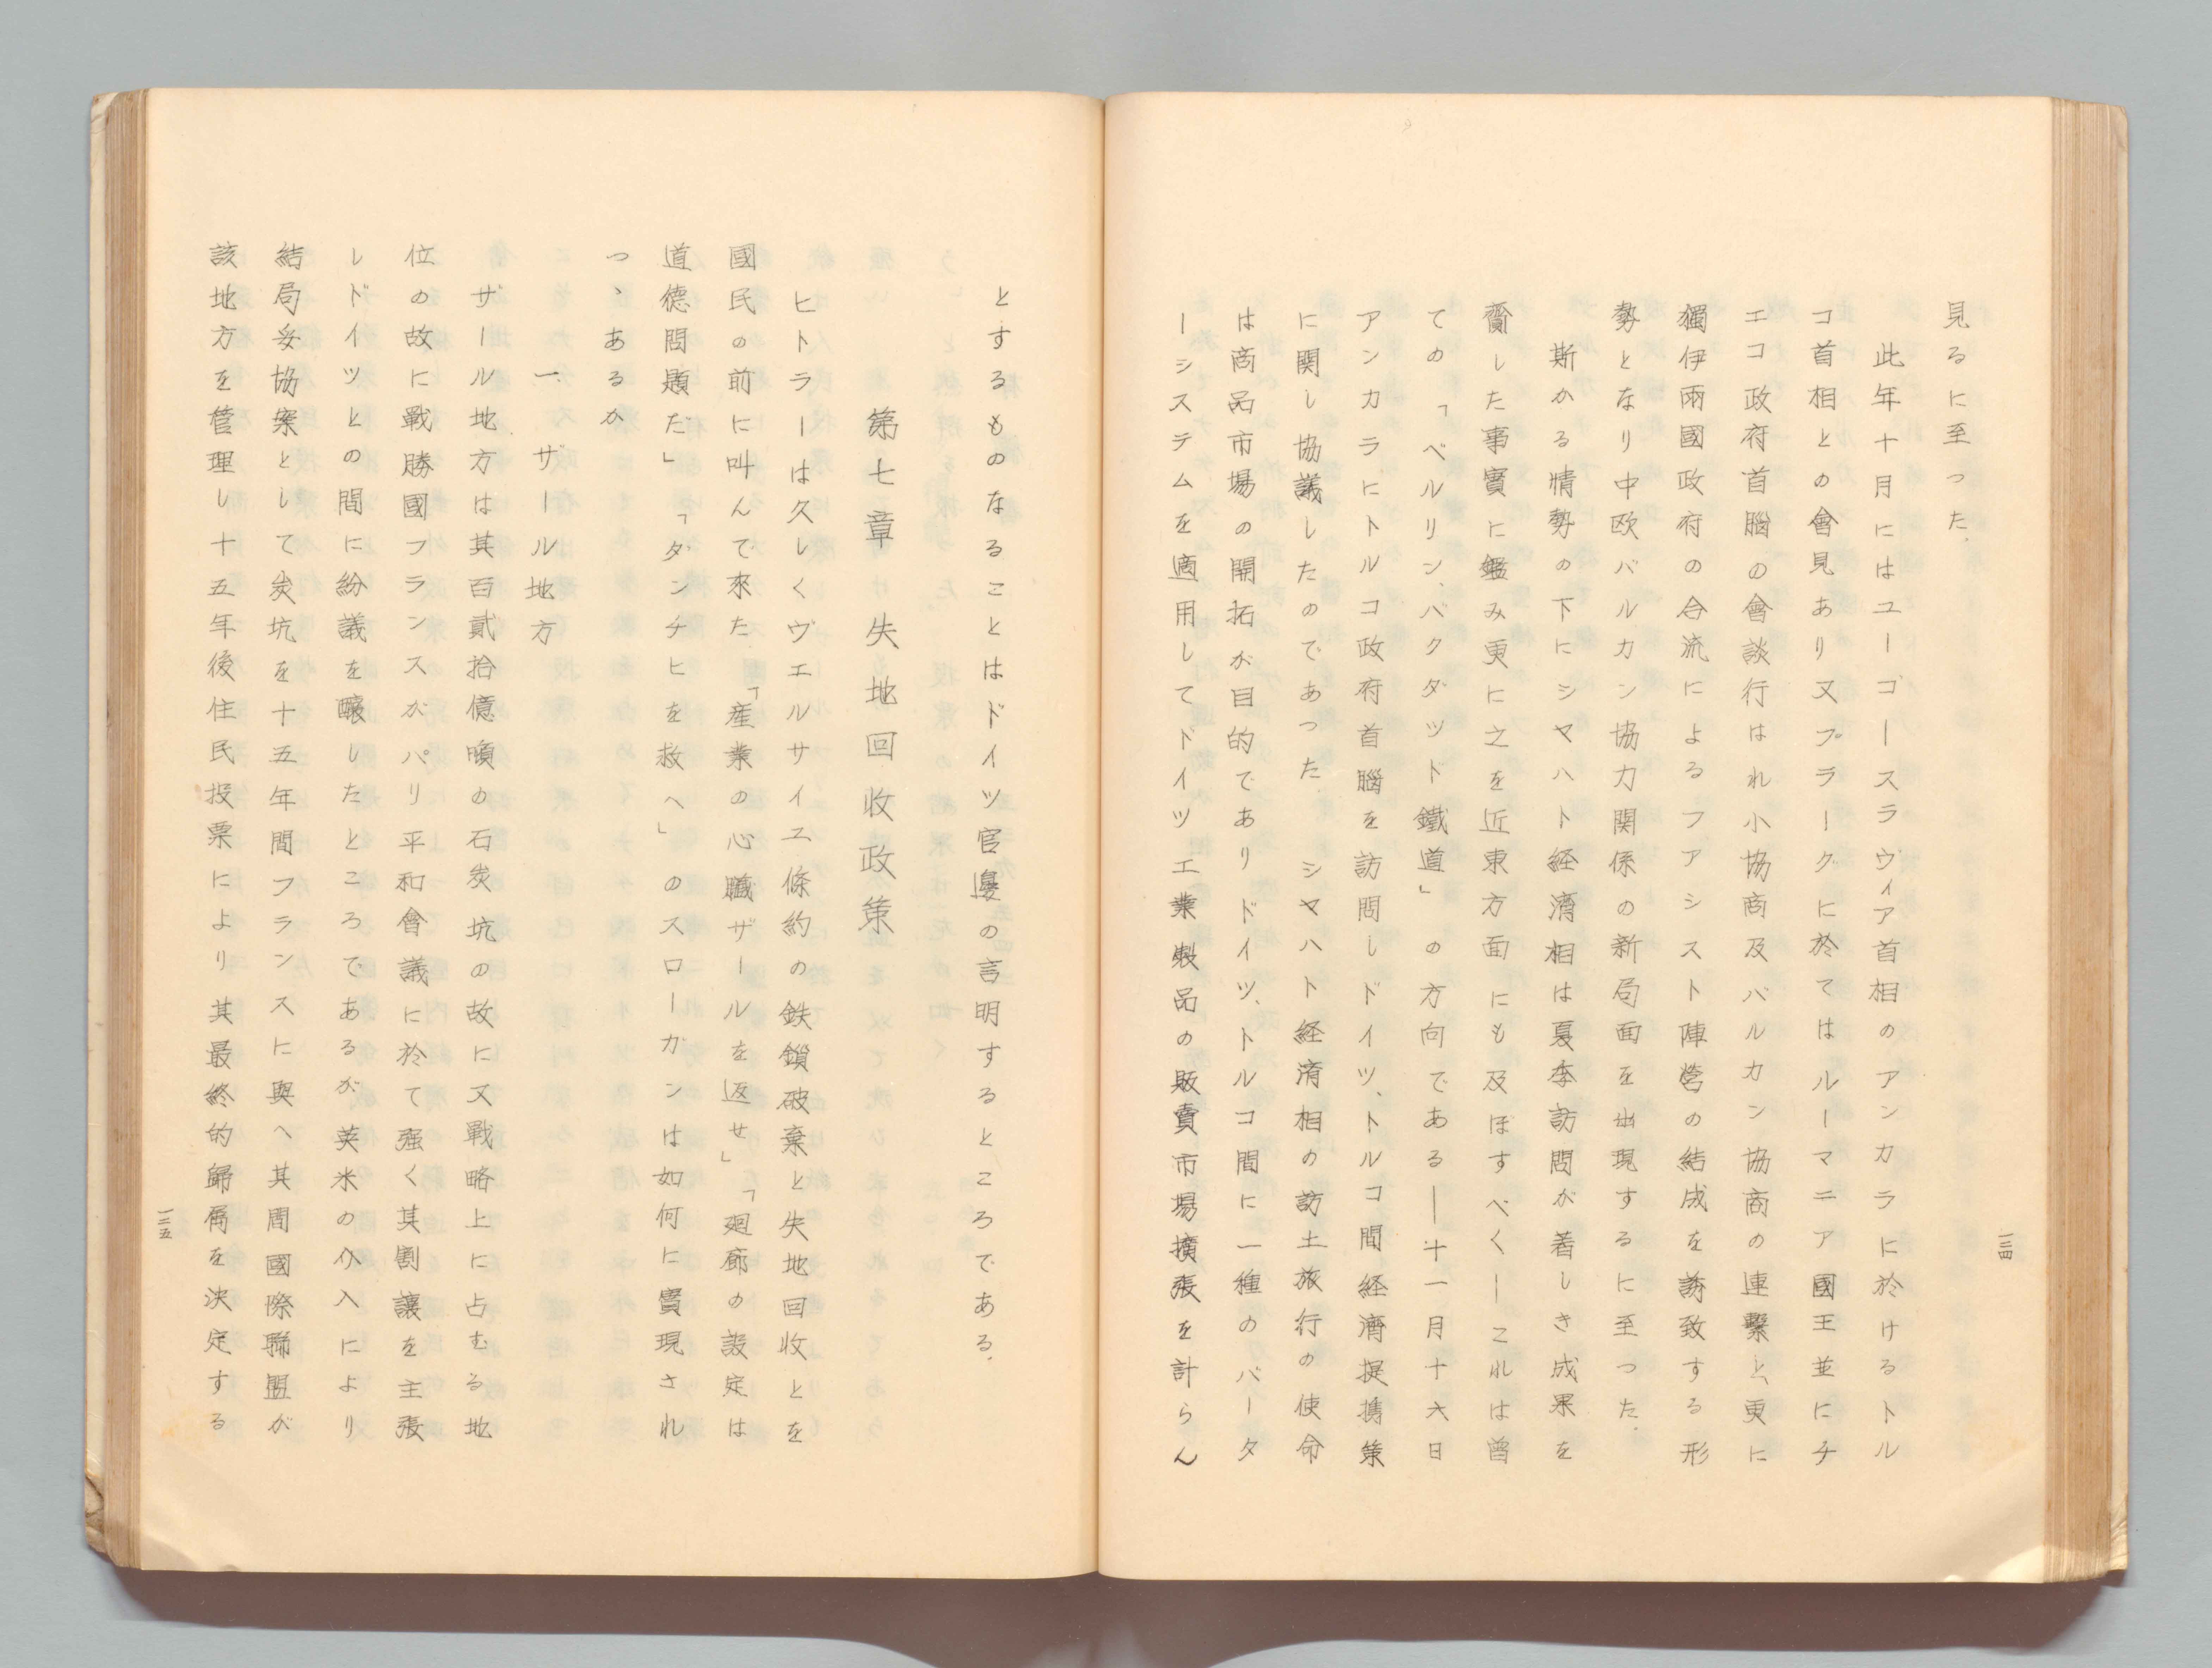 見るに至った.
此年十月にはユーゴースラヴィア首相のアンカラに於けるトル
コ首相との會見あり又プラーグに於てはルーマニア國王並にチ
エコ政府首腦の會談行はれ小協商及バルカン協商の連繋と、更に
獨伊兩國政府の合流によるファシスト陣營の結成を誘致する形
勢となり中欧バルカン協力関係の新局面を出現するに至つた.
斯かる情勢の下にシヤハト経濟相は夏季訪問が著しき成果を
齎した事實に鑑み更に之を近東方面にも及ぼすべく―これは曾
ての「ベルリン、バクダツド鐵道」の方向である―十一月十六日
アンカラにトルコ政府首腦を訪問しドイツ、トルコ間経濟提携策
に関し協議したのであつた シヤハト経済相の訪土旅行の使命
は商品市場の開拓が目的でありドイツ、トルコ間に一種のバータ
ーシステムを適用してドイツ工業製品の販賣市場擴張を計らん
一三四
とするものなることはドイツ官邊の言明するところである.
第七章 失地回收政策
ヒトラーは久しくヴエルサイユ條約の鉄鎖破棄と失地回收とを
國民の前に叫んで來た.「産業の心臓ザールを返せ」「廻廊の設定は
道德問題だ」「ダンチヒを救へ」のスローガンは如何に實現され
つゝあるか
一. ザール地方
ザール地方は其百貳拾億噸の石炭坑の故に又戰略上に占むる地
位の故に戰勝國フランスがパリ平和會議に於て强く其割讓を主張
しドイツとの間に紛議を釀したところであるが英米の介入により
結局妥協案として炭坑を十五年間フランスに與へ其間國際聯盟が
該地方を管理し十五年後住民投票により其最終的歸屬を決定する
一三五